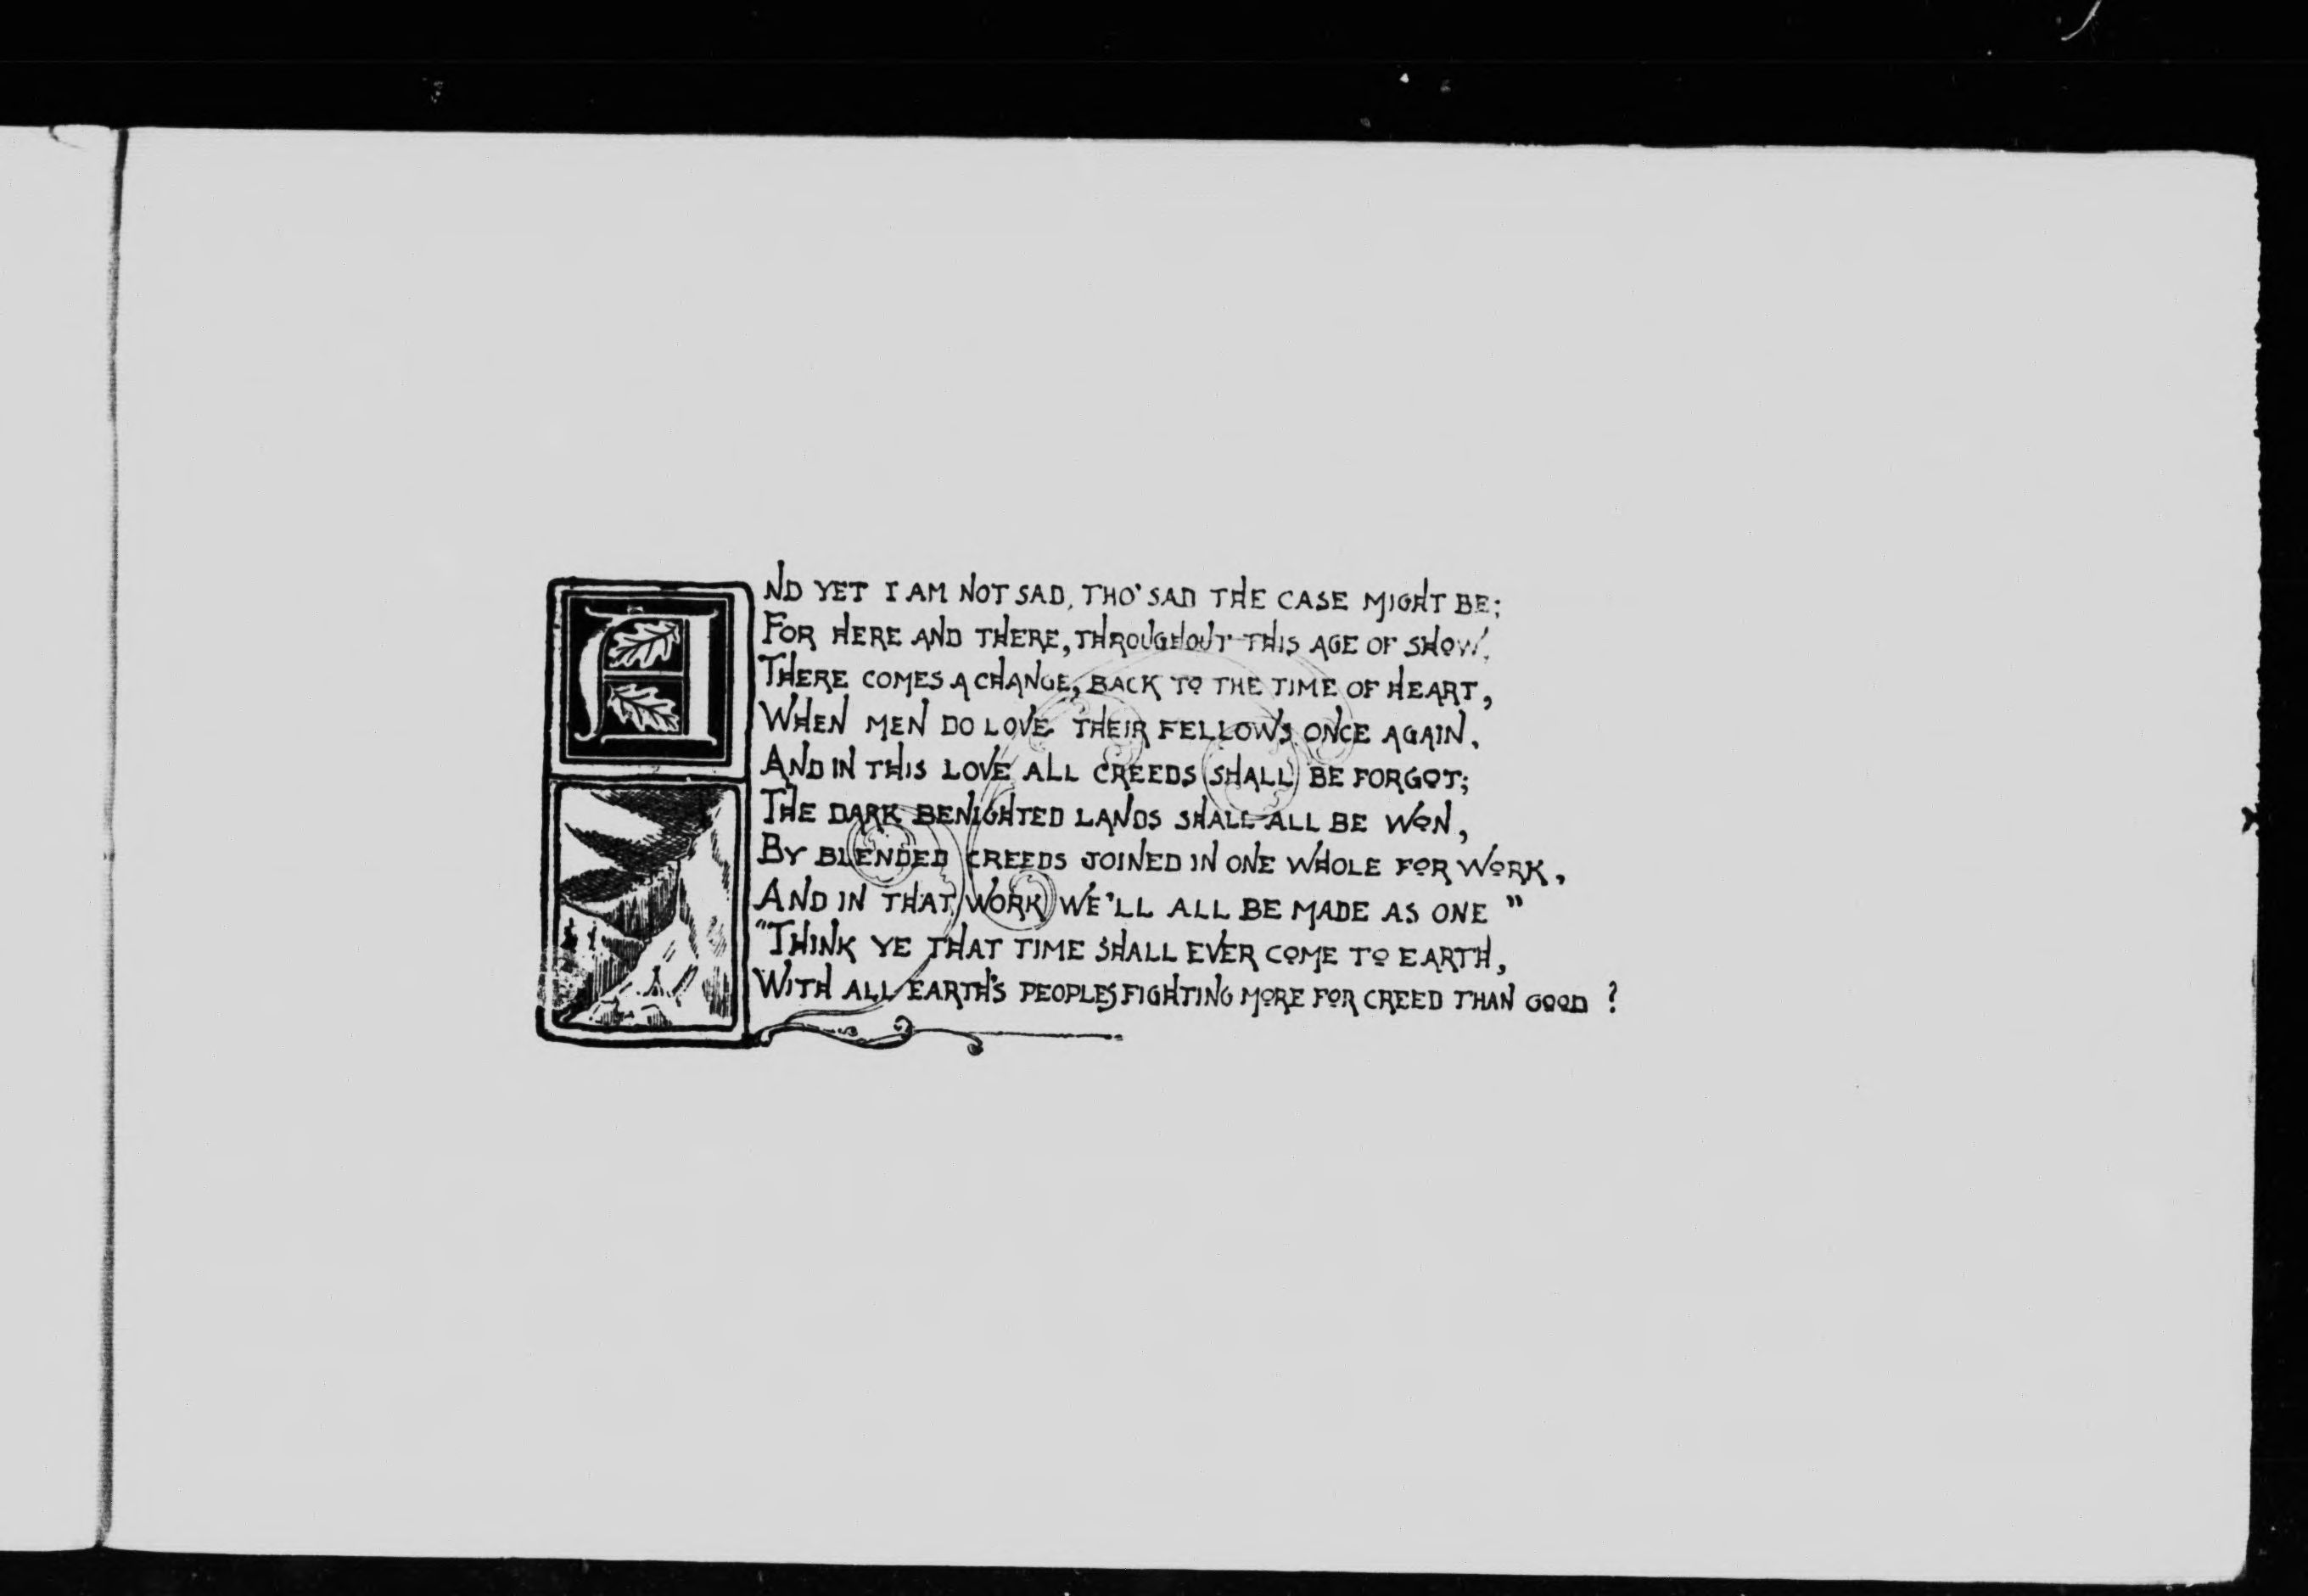 AND YET I AM NOT SAD, THO' SAD THE CASE MIGHT BE;
FOR HERE AND THERE, THROUGHOUT THIS AGE OF SHOW,
THERE COMES A CHANGE, BACK TO THE TIME OF HEART,
WHEN MEN DO LOVE THEIR FELLOWS ONCE AGAIN,
AND IN THIS LOVE ALL CREEDS SHALL BE FORGOT;
THE DARK BENIGHTED LANDS SHALL ALL BE WON,
BY BLENDED CREEDS JOINED IN ONE WHOLE FOR WORK,
AND IN THAT WORK WE'LL ALL BE MADE AS ONE "
"THINK YE THAT TIME SHALL EVER COME TO EARTH,
WITH ALL EARTH'S PEOPLES FIGHTING MORE FOR CREED THAN GOOD ?